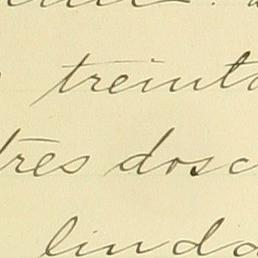 treinta
tres dosc
linda